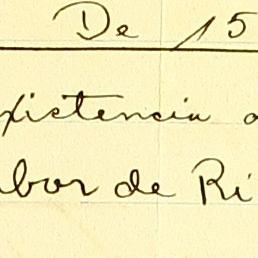 De 15
xistencia a
abor de Ri